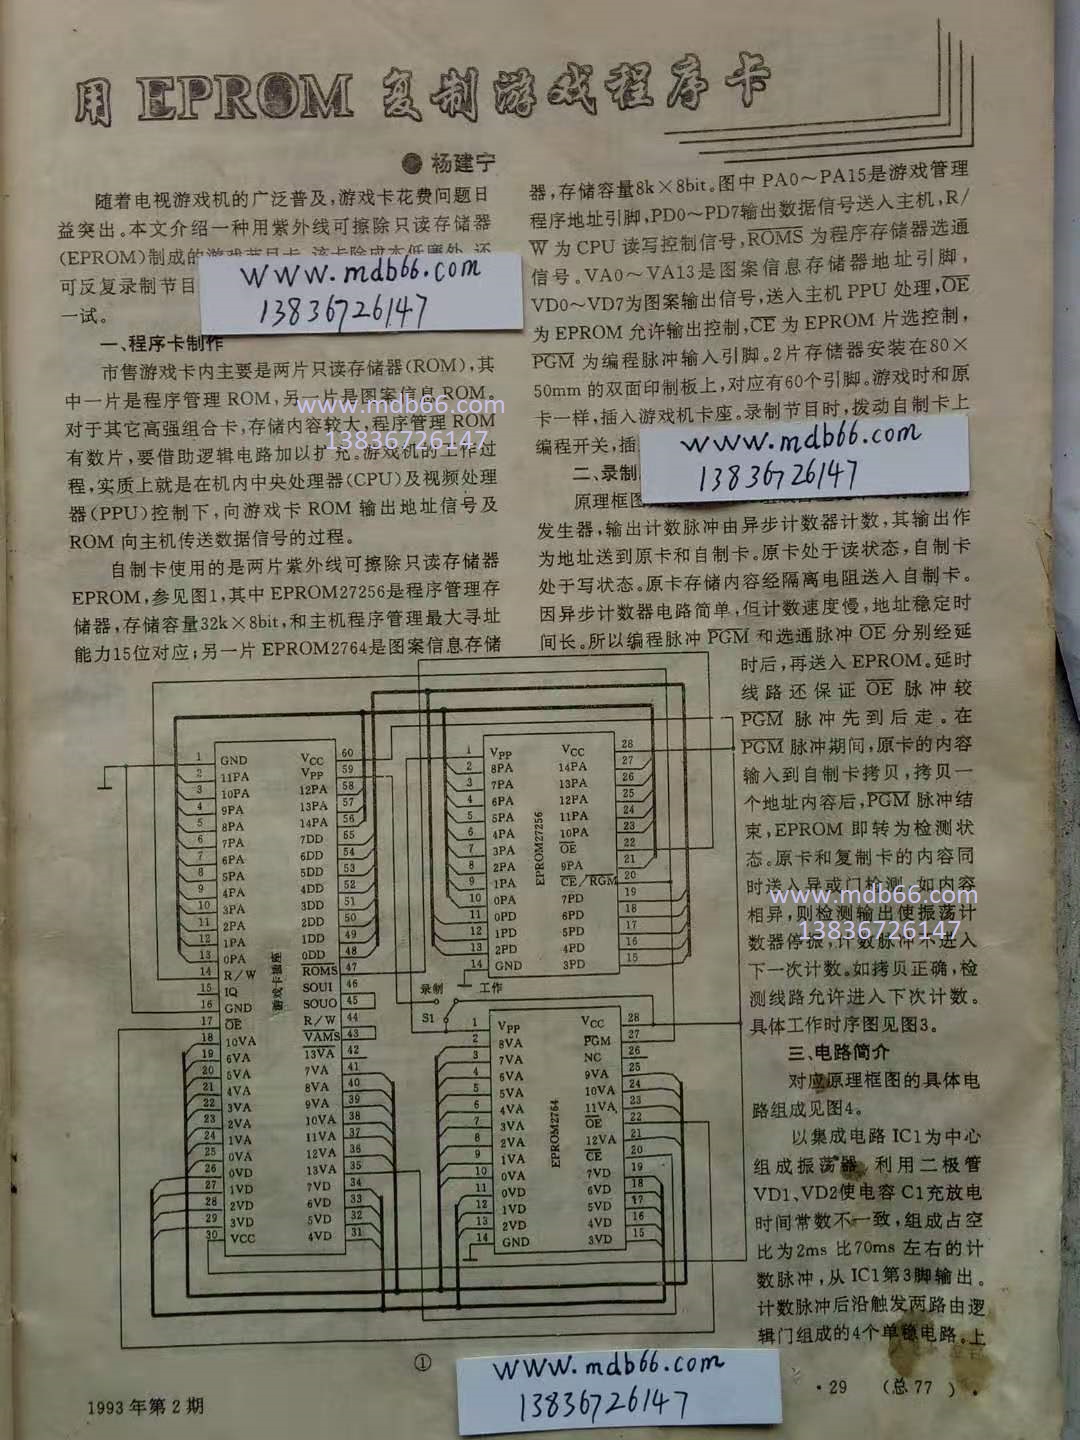 用 EPROM 复制游戏程序卡
● 杨建宁
随着电视游戏机的广泛普及,游戏卡花费问题日
益突出。本文介绍一种用紫外线可擦除只读存储器
(EPROM)制成的游戏节目卡。该卡除成本低廉外,还
可反复录制节目
一试。
www.mdb66.com
13836726147
一、程序卡制作
市售游戏卡内主要是两片只读存储器(ROM),其
中一片是程序管理 ROM,另一片是图案信息 ROM。
www.mdb66.com
对于其它高强组合卡,存储内容较大,程序管理 ROM
13836726147
有数片,要借助逻辑电路加以扩充。游戏机的工作过
程,实质上就是在机内中央处理器(CPU)及视频处理
器(PPU)控制下,向游戏卡 ROM 输出地址信号及
ROM 向主机传送数据信号的过程。
自制卡使用的是两片紫外线可擦除只读存储器
EPROM,参见图1,其中 EPROM27256是程序管理存
储器,存储容量32k×8bit,和主机程序管理最大寻址
能力15位对应;另一片 EPROM2764是图案信息存储
器,存储容量8k×8bit。图中 PA0~PA15是游戏管理
程序地址引脚,PD0~PD7输出数据信号送入主机,R/
W 为 CPU 读写控制信号,ROMS 为程序存储器选通
信号。VA0~VA13是图案信息存储器地址引脚,
VD0~VD7为图案输出信号,送入主机 PPU 处理,OE
为 EPROM 允许输出控制,CE 为 EPROM 片选控制,
PGM 为编程脉冲输入引脚。2片存储器安装在80×
50mm 的双面印制板上,对应有60个引脚。游戏时和原
卡一样,插入游戏机卡座。录制节目时,拨动自制卡上
编程开关,插
www.mdb66.com
13836726147
二、录制
原理框图
发生器,输出计数脉冲由异步计数器计数,其输出作
为地址送到原卡和自制卡。原卡处于读状态,自制卡
处于写状态。原卡存储内容经隔离电阻送入自制卡。
因异步计数器电路简单,但计数速度慢,地址稳定时
间长。所以编程脉冲 PGM 和选通脉冲 OE 分别经延
时后,再送入 EPROM。延时
线路还保证 OE 脉冲较
PGM 脉冲先到后走。在
PGM 脉冲期间,原卡的内容
输入到自制卡拷贝,拷贝一
个地址内容后,PGM 脉冲结
束,EPROM 即转为检测状
态。原卡和复制卡的内容同
时送入异或门检测,如内容
www.mdb66.com
相异,则检测输出使振荡计
13836726147
数器停振,计数脉冲不进入
下一次计数。如拷贝正确,检
测线路允许进入下次计数。
具体工作时序图见图3。
三、电路简介
对应原理框图的具体电
路组成见图4。
以集成电路 IC1为中心
组成振荡器,利用二极管
VD1、VD2使电容 C1充放电
时间常数不一致,组成占空
比为2ms 比70ms 左右的计
数脉冲,从 IC1第3脚输出。
计数脉冲后沿触发两路由逻
辑门组成的4个单稳电路。上
游戏卡插座
1 GND
2 11PA
3 10PA
4 9PA
5 8PA
6 7PA
7 6PA
8 5PA
9 4PA
10 3PA
11 2PA
12 1PA
13 0PA
14 R/W
15 IQ
16 GND
17 OE
18 10VA
19 6VA
20 5VA
21 4VA
22 3VA
23 2VA
24 1VA
25 0VA
26 0VD
27 1VD
28 2VD
29 3VD
30 VCC
VCC 60
VPP 59
12PA 58
13PA 57
14PA 56
7DD 55
6DD 54
5DD 53
4DD 52
3DD 51
2DD 50
1DD 49
0DD 48
ROMS 47
SOUI 46
SOUO 45
R/W 44
VAMS 43
13VA 42
7VA 41
8VA 40
9VA 39
10VA 38
11VA 37
12VA 36
13VA 35
7VD 34
6VD 33
5VD 32
4VD 31
EPROM27256
1 VPP
2 8PA
3 7PA
4 6PA
5 5PA
6 4PA
7 3PA
8 2PA
9 1PA
10 0PA
11 0PD
12 1PD
13 2PD
14 GND
VCC 28
14PA 27
13PA 26
12PA 25
11PA 24
10PA 23
OE 22
9PA 21
CE/RGM 20
7PD 19
6PD 18
5PD 17
4PD 16
3PD 15
录制 工作
S1
EPROM2764
1 VPP
2 8VA
3 7VA
4 6VA
5 5VA
6 4VA
7 3VA
8 2VA
9 1VA
10 0VA
11 0VD
12 1VD
13 2VD
14 GND
VCC 28
PGM 27
NC 26
9VA 25
10VA 24
11VA 23
OE 22
12VA 21
CE 20
7VD 19
6VD 18
5VD 17
4VD 16
3VD 15
①
www.mdb66.com
13836726147
1993年第2期
·29 (总77)·